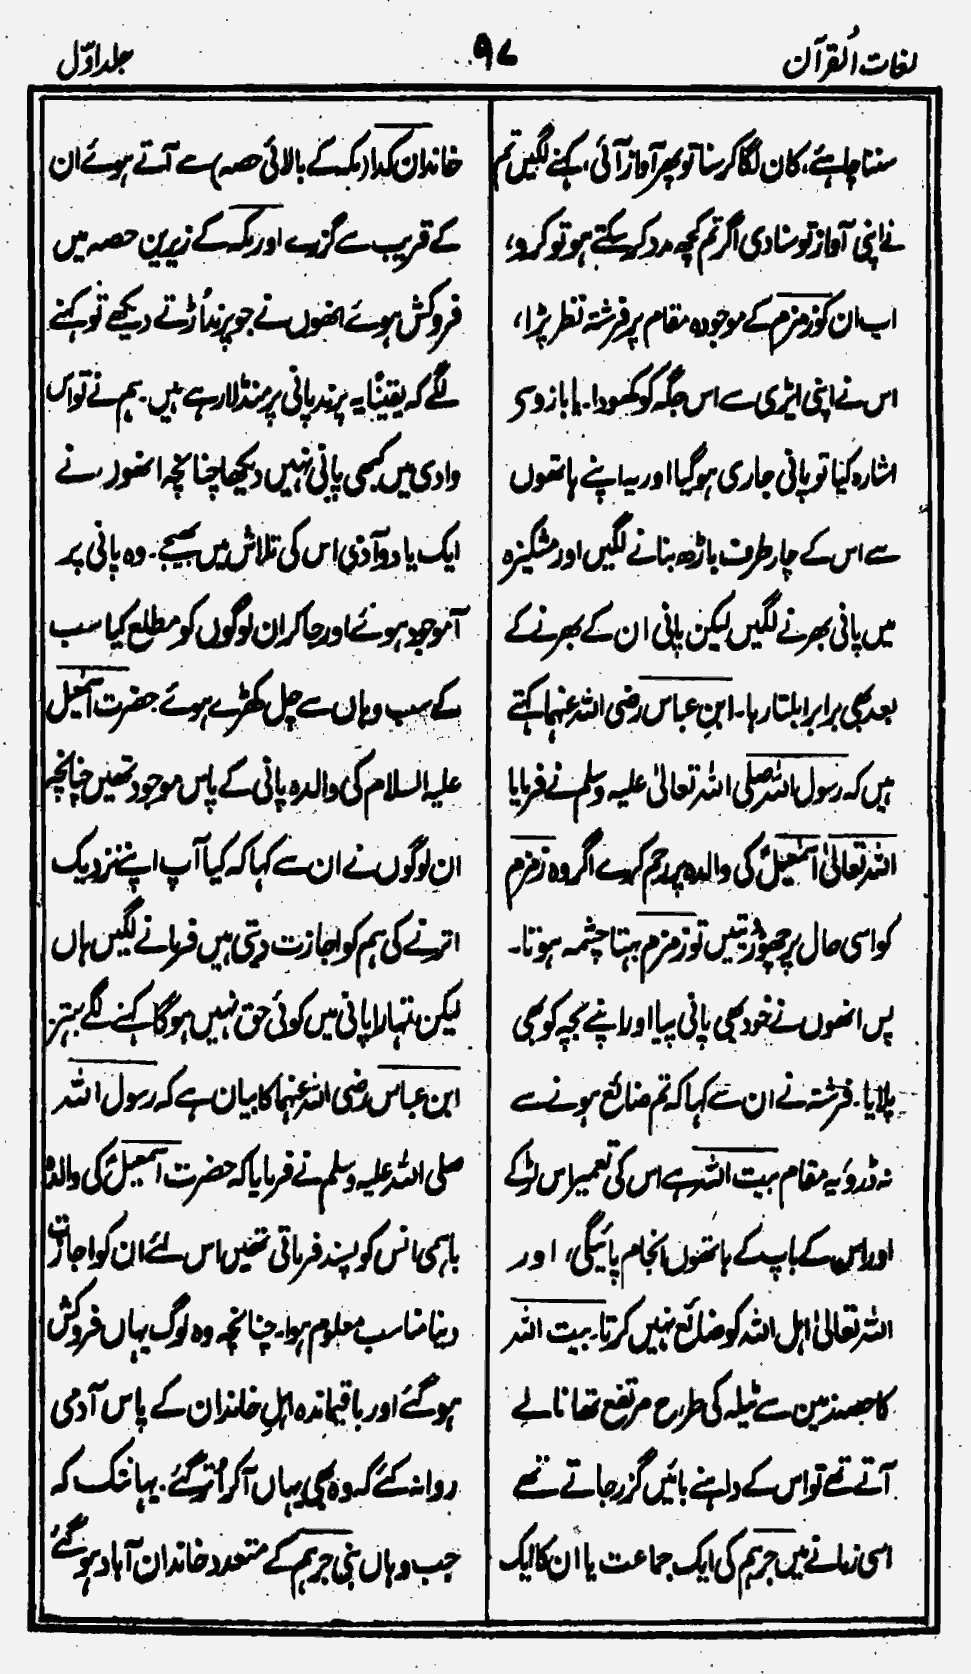 لغات القرآن
۹۷
جلد اوّل
سننا چاہئے، کان لگا کر سنا تو پھر آواز آئی، کہنے لگیں تم
نے اپنی آواز تو سنا دی اگر تم کچھ مدد کر سکتے ہو تو کرو،
اب ان کو زمزم کے موجودہ مقام پر فرشتہ نظر پڑا،
اس نے اپنی ایڑی سے اس جگہ کو کھودا۔ یا بازو سی
اشارہ کیا تو پانی جاری ہو گیا اور یہ اپنے ہاتھوں
سے اس کے چار طرف باڑھ بنانے لگیں اور مشکیزہ
میں پانی بھرنے لگیں لیکن پانی ان کے بھرنے کے
بعد بھی برابر ابلتا رہا۔ ابن عباس رضی اللہ عنہما کہتے
ہیں کہ رسول اللہ صلی اللہ تعالیٰ علیہ وسلم نے فرمایا
اللہ تعالیٰ اسمٰعیلؑ کی والدہ پر رحم کرے اگر وہ زمزم
کو اسی حال پر چھوڑ دیتیں تو زمزم بہتا چشمہ ہوتا۔
پس انھوں نے خود بھی پانی پیا اور اپنے بچہ کو بھی
پلایا۔ فرشتہ نے ان سے کہا کہ تم ضائع ہونے سے
نہ ڈرو یہ مقام بیت اللہ ہے اس کی تعمیر اس لڑکے
اور اس کے باپ کے ہاتھوں انجام پائیگی، اور
اللہ تعالیٰ اہل اللہ کو ضائع نہیں کرتا۔ بیت اللہ
کا حصہ زمین سے ٹیلہ کی طرح مرتفع تھا نالے
آتے تھے تو اس کے داہنے بائیں گزر جاتے تھے
اسی زمانے میں جرہم کی ایک جماعت یا ان کا ایک
خاندان کدا (مکہ کے بالائی حصہ) سے آتے ہوئے ان
کے قریب سے گزرے اور مکہ کے زیریں حصہ میں
فروکش ہوئے انھوں نے جو پرند اُڑتے دیکھے تو کہنے
لگے کہ یقینًا یہ پرند پانی پر منڈلا رہے ہیں۔ ہم نے تو اس
وادی میں کبھی پانی نہیں دیکھا چنانچہ انھوں نے
ایک یا دو آدمی اس کی تلاش میں بھیجے۔ وہ پانی پر
آموجود ہوئے اور جا کر ان لوگوں کو مطلع کیا سب
کے سب وہاں سے چل کھڑے ہوئے۔ حضرت اسمٰعیل
علیہ السلام کی والدہ پانی کے پاس موجود تھیں چنانچہ
ان لوگوں نے ان سے کہا کہ کیا آپ اپنے نزدیک
اترنے کی ہم کو اجازت دیتی ہیں فرمانے لگیں ہاں
لیکن تمہارا پانی میں کوئی حق نہیں ہوگا کہنے لگے بہتر
ابن عباس رضی اللہ عنہما کا بیان ہے کہ رسول اللہ
صلی اللہ علیہ وسلم نے فرمایا کہ حضرت اسمٰعیلؑ کی والدہ
باہمی انس کو پسند فرماتی تھیں اس لئے ان کو اجازت
دینا مناسب معلوم ہوا۔ چنانچہ وہ لوگ یہاں فروکش
ہو گئے اور باقیماندہ اہلِ خاندان کے پاس آدمی
روانہ کئے کہ وہ بھی یہاں آ کر اُتر گئے۔ یہانتک کہ
جب وہاں بنی جرہم کے متعدد خاندان آباد ہو گئے